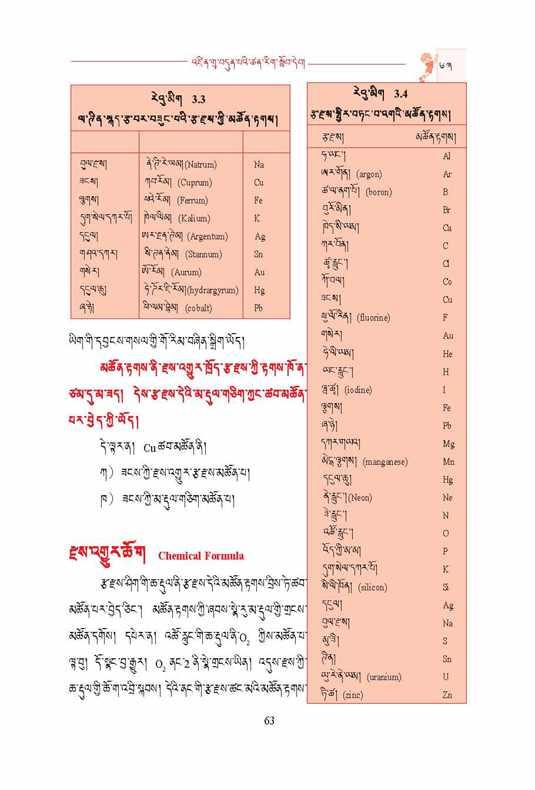 འཛིན་གྲྭ་བདུན་པའི་ཚན་རིག་སློབ་དེབ།
༦༣
རེའུ་མིག 3.3
ལ་ཊིན་སྐད་རྩ་བར་བཟུང་བའི་རྩ་རྫས་ཀྱི་མཚོན་རྟགས།
བུལ་རྫས།	ནེ་ཊི་རེ་ཡམ། (Natrum)	Na
ཟངས།	ཀབ་རོམ། (Cuprum)	Cu
ལྕགས།	ཕའེ་རོམ། (Ferrum)	Fe
དུག་སེལ་དཀར་པོ།	ཁེལ་ལིམ། (Kalium)	K
དངུལ།	ཨར་ཇན་ཊེམ། (Argentum)	Ag
གཤའ་དཀར།	སི་ཊན་ནེམ། (Stannum)	Sn
གསེར།	ཨོ་རོམ། (Aurum)	Au
དངུལ་ཆུ།	(hydrargyrum)	Hg
ཞ་ཉེ།	(cobalt)	Pb
ཡིག་གི་དབྱངས་གསལ་གྱི་གོ་རིམ་བཞིན་སྒྲིག་ཡོད།
མཚོན་རྟགས་ནི་རྫས་འགྱུར་ཁྲོད་རྩ་རྫས་ཀྱི་རྟགས་ཁོ་ན་
ཙམ་དུ་མ་ཟད། དེས་རྩ་རྫས་དེའི་མ་དུལ་གཅིག་ཀྱང་ཚབ་མཚོན་
པར་བྱེད་ཀྱི་ཡོད།
དེ་ལྟར་ན། Cu ཚབ་མཚོན་ནི།
ཀ༽ ཟངས་ཀྱི་རྫས་འགྱུར་རྩ་རྫས་མཚོན་པ།
ཁ༽ ཟངས་ཀྱི་མ་དུལ་གཅིག་མཚོན་པ།
རྫས་འགྱུར་ཚོག Chemical Formula
རྩ་རྫས་ཤིག་གི་ཆ་དུལ་ནི་རྩ་རྫས་དེའི་མཚོན་རྟགས་བྲིས་ཏེ་ཚབ་
མཚོན་པར་བྱེད་ཅིང་། མཚོན་རྟགས་ཀྱི་ཞབས་སྣེ་རུ་མ་དུལ་གྱི་གྲངས་
མཚོན་དགོས། དཔེར་ན། འཚོ་རླུང་གི་ཆ་དུལ་ནི་O₂ ཀྱིས་མཚོན་པ་
ལྟ་བུ། དོ་སྣང་བྱ་རྒྱུར། O₂ ནང་2 ནི་སྣེ་གྲངས་ཡིན། འདུས་རྫས་ཀྱི་
ཆ་དུལ་གྱི་ཚོ་ག་འབྲི་སྐབས། དེའི་ནང་གི་རྩ་རྫས་ཚང་མའི་མཚོན་རྟགས་
རེའུ་མིག 3.4
རྩ་རྫས་སྤྱིར་བཏང་བ་འགའི་མཚོན་རྟགས།
རྩ་རྫས།	མཚོན་རྟགས།
ཧ་ཡང་།	Al
ཨར་གོན། (argon)	Ar
ཚ་ལ་ནག་པོ། (boron)	B
བྲོ་མིན།	Br
ཁེད་སི་ཡམ།	Ca
ཀར་བོན།	C
ཚྭ་རླུང་།	Cl
ཀོ་བལ།	Co
ཟངས།	Cu
ཕླུ་ལོ་རིན། (fluorine)	F
གསེར།	Au
ཧེ་ལི་ཡམ།	He
ཡང་རླུང་།	H
(iodine)	I
ལྕགས།	Fe
ཞ་ཉེ།	Pb
དཀར་གཡའ།	Mg
མེང་ལྕགས། (manganese)	Mn
དངུལ་ཆུ།	Hg
ནེ་རླུང་། (Neon)	Ne
ཟེ་རླུང་།	N
འཚོ་རླུང་།	O
P
དུག་སེལ་དཀར་པོ།	K
སི་ལི་ཁོན། (silicon)	Si
དངུལ།	Ag
བུལ་རྫས།	Na
མུ་ཟི།	S
ཊིན།	Sn
ཡུ་རེ་ནེ་ཡམ། (uranium)	U
ཏི་ཚ། (zinc)	Zn
63